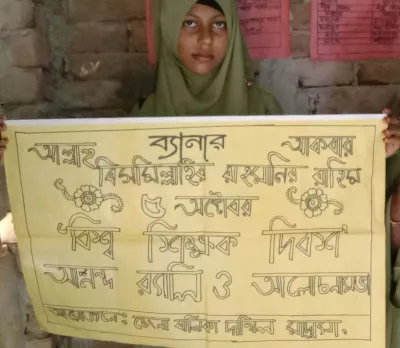 ব্যানার
আল্লাহু আকবার
বিসমিল্লাহির রাহমানির রাহিম
৫ অক্টোবর
বিশ্ব শিক্ষক দিবস
আনন্দ র‍্যালি ও আলোচনাসভা
আয়োজনে: বালিকা দাখিল মাদ্রাসা.